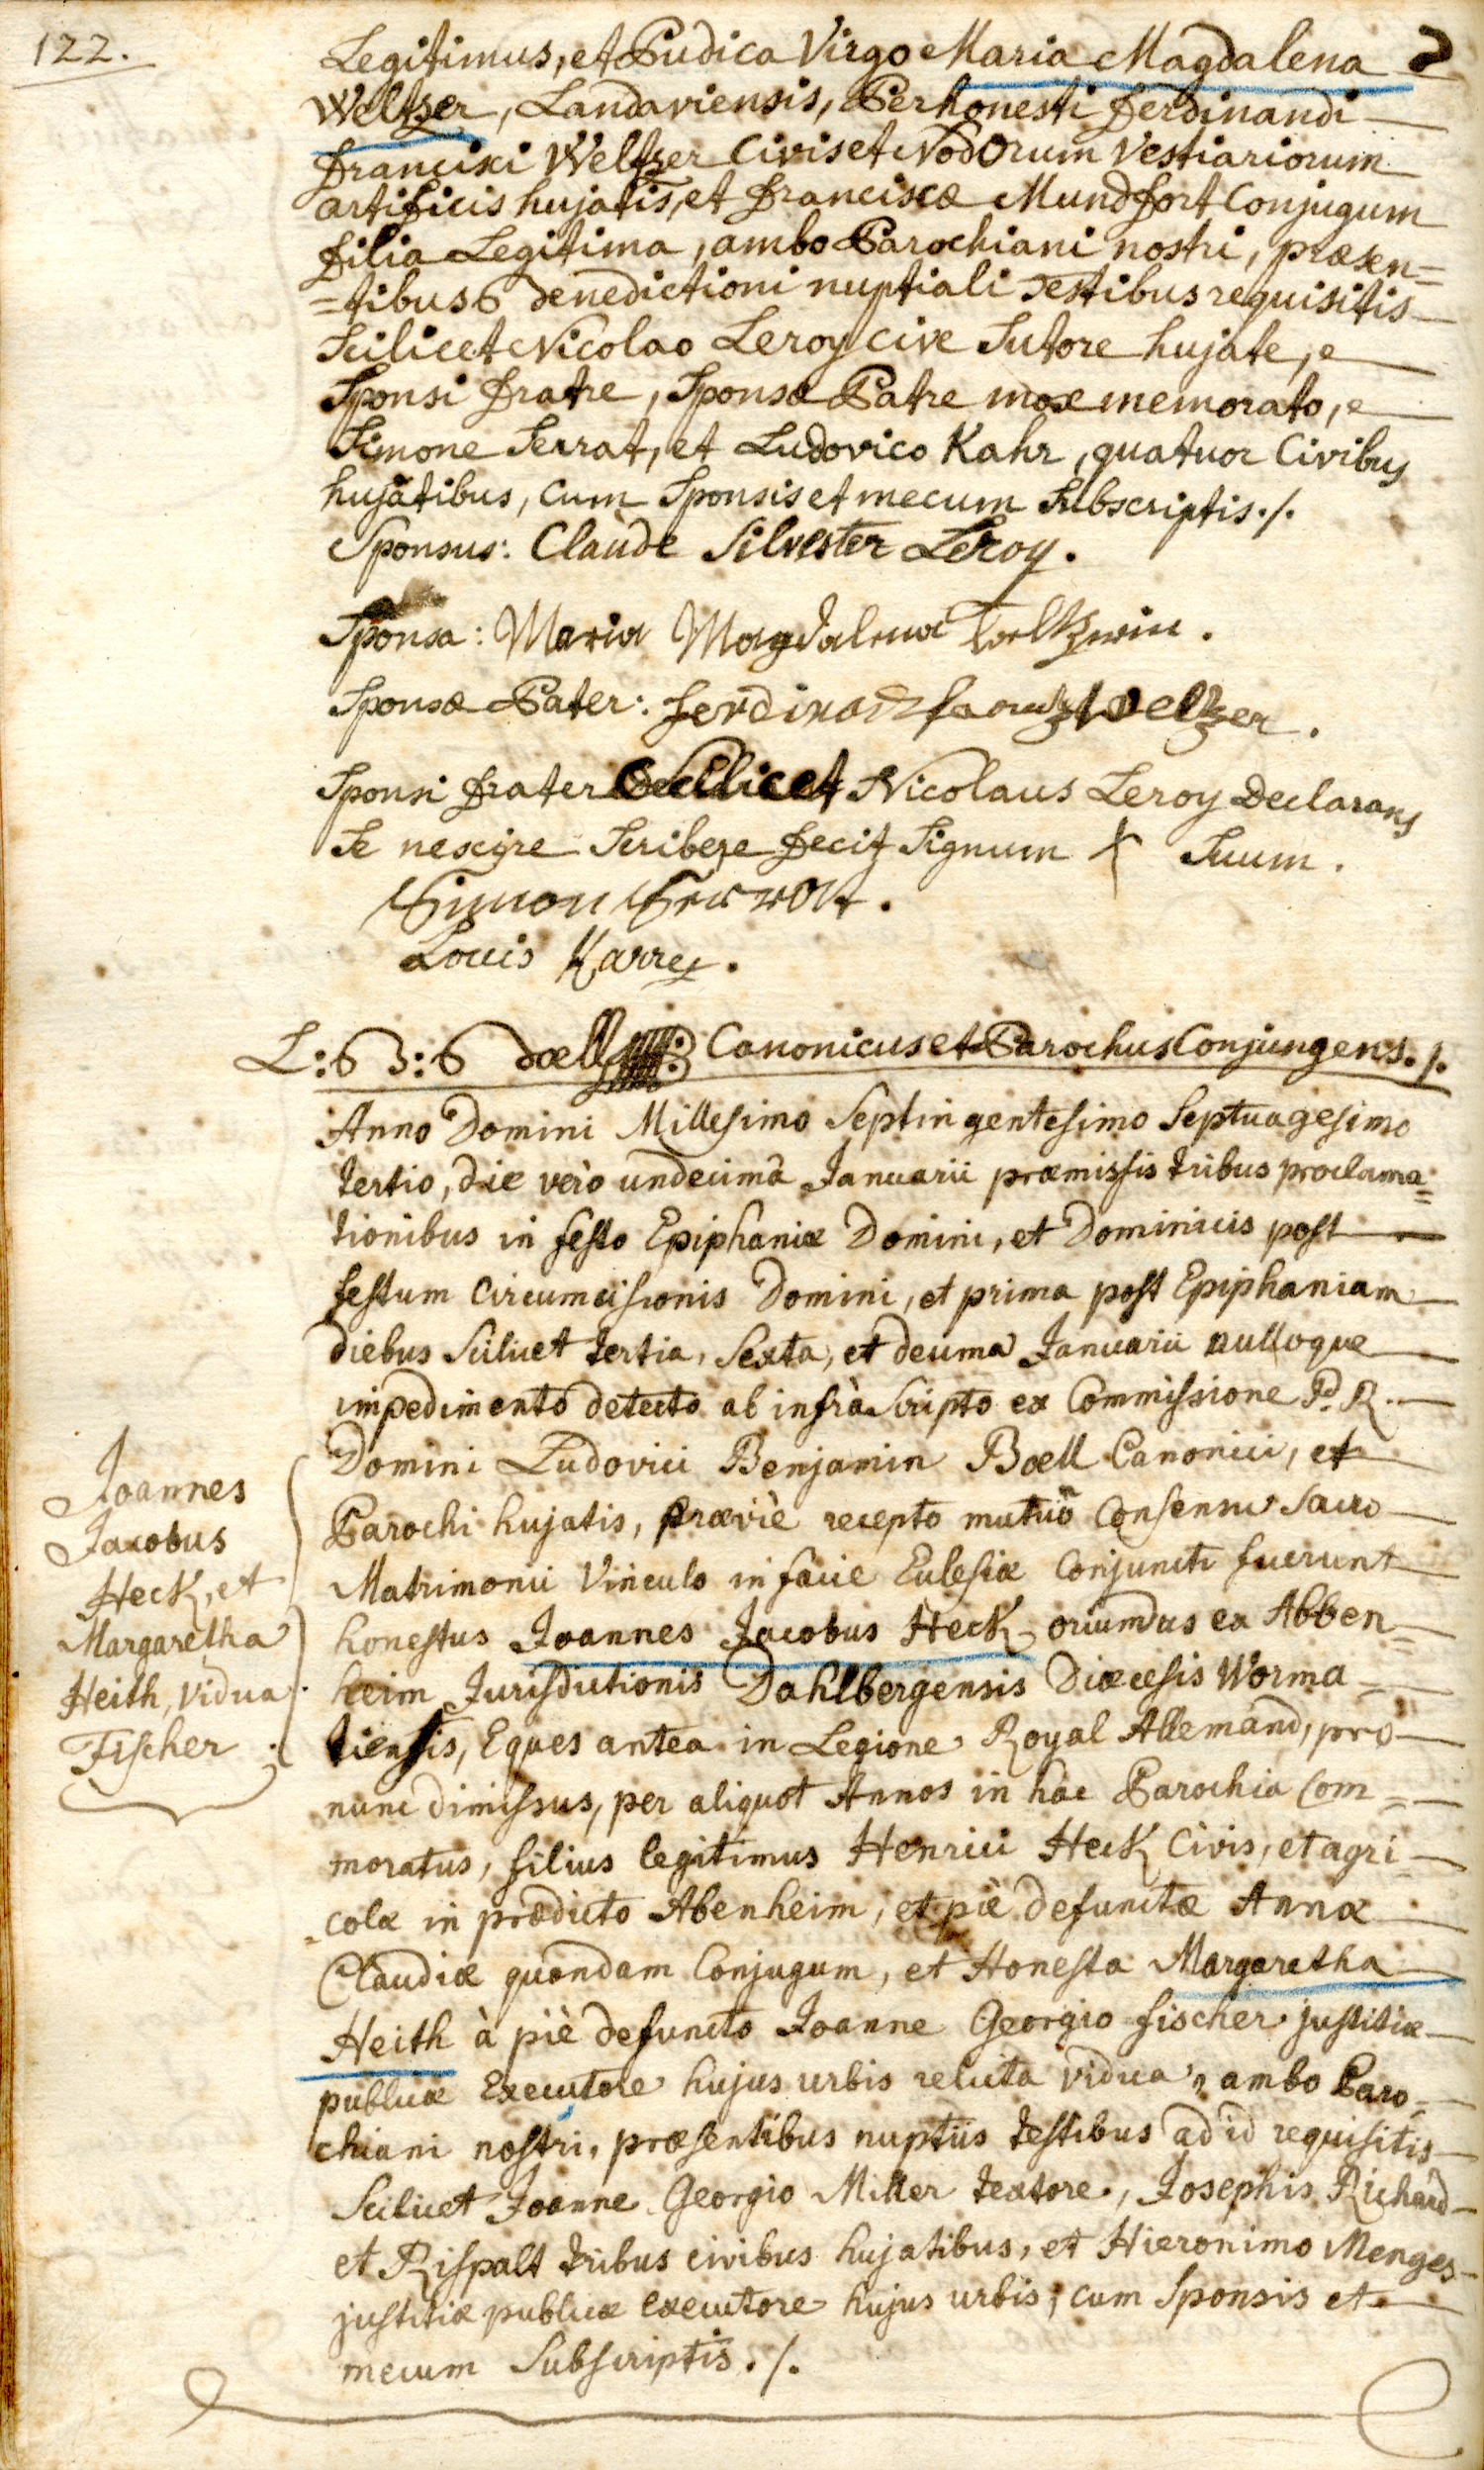 122.
Legitimus, et Pudica Virgo Maria Magdalena
Weltzer, Landaviensis, Perhonesti Ferdinandi
Francisci Weltzer Civis et Nodorum Vestiariorum
artificis hujatis, et Franciscæ Mundfort Conjugum
filia Legitima, ambo Parochiani nostri, præsen=
=tibus benedictioni nuptiali Testibus requisitis
Scilicet Nicolao Leroy cive Sutore hujate,
Sponsi fratre, Sponsæ Patre mox memorato,
Simone Serrat, et Ludovico Kahr, quatuor Civibus
hujatibus, cum Sponsis et mecum Subscriptis ./.
Sponsus: Claude Silvester Leroy.
Sponsa: Maria Magdalena Weltzerin.
Sponsæ Pater: Ferdinand Frantz Weltzer.
Sponsi frater Scilicet Nicolaus Leroy Declarans
Se nescire Scribere fecit Signum X Suum.
Simon Serrat.
Louis Karre.
L: B: Boell Canonicus et Parochus Conjungens ./.
Anno Domini Millesimo Septingentesimo Septuagesimo
tertio, die verò undecimâ Januarii præmissis tribus proclama=
tionibus in festo Epiphaniæ Domini, et Dominicis post
festum Circumcisionis Domini, et prima post Epiphaniam
diebus Scilicet tertia, Sexta, et decima Januarii nulloque
impedimento detecto ab infrà Scripto ex Commissione P. R.
Domini Ludovici Benjamin Boell Canonici, et
Parochi hujatis, præviè recepto mutuo Consensu Sacro
Matrimonii Vinculo in facie Ecclesiæ Conjuncti fuerunt
honestus Joannes Jacobus Heck oriundus ex Abben=
heim Jurisdictionis Dahlbergensis Diœcesis Worma=
tiensis, Eques antea in Legione Royal Allemand, pro
nunc dimissus, per aliquot Annos in hac Parochia Com=
moratus, filius legitimus Henrici Heck Civis, et agri=
colæ in prædicto Abenheim, et piè defunctæ Annæ
Claudiæ quondam Conjugum, et Honesta Margaretha
Heith à piè defuncto Joanne Georgio Fischer justitiæ
publicæ Executore hujus urbis relicta Vidua, ambo Paro=
chiani nostri, præsentibus nuptiis testibus ad id requisitis
Scilicet Joanne Georgio Miller textore, Josephis Richard
et Rispalt tribus civibus hujatibus, et Hieronimo Menges
justitiæ publicæ executore hujus urbis, cum Sponsis et
mecum Subscriptis ./.
Joannes
Jacobus
Heck, et
Margaretha
Heith, Vidua
Fischer.